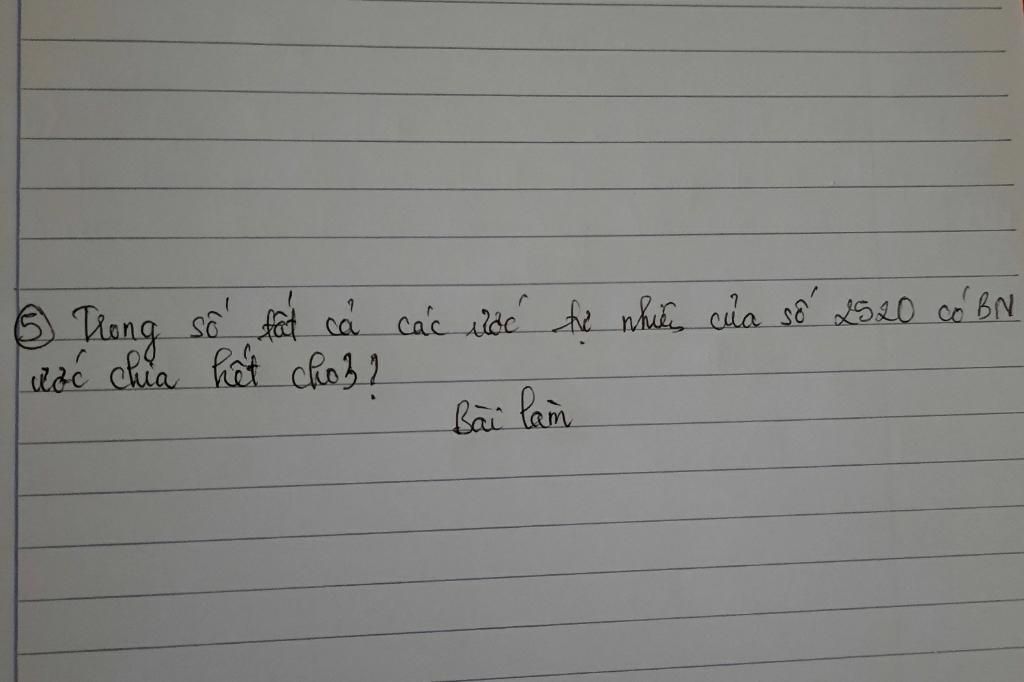 ⑤ Trong số tất cả các ước tự nhiên của số 2520 có BN
ước chia hết cho 3?
Bài làm